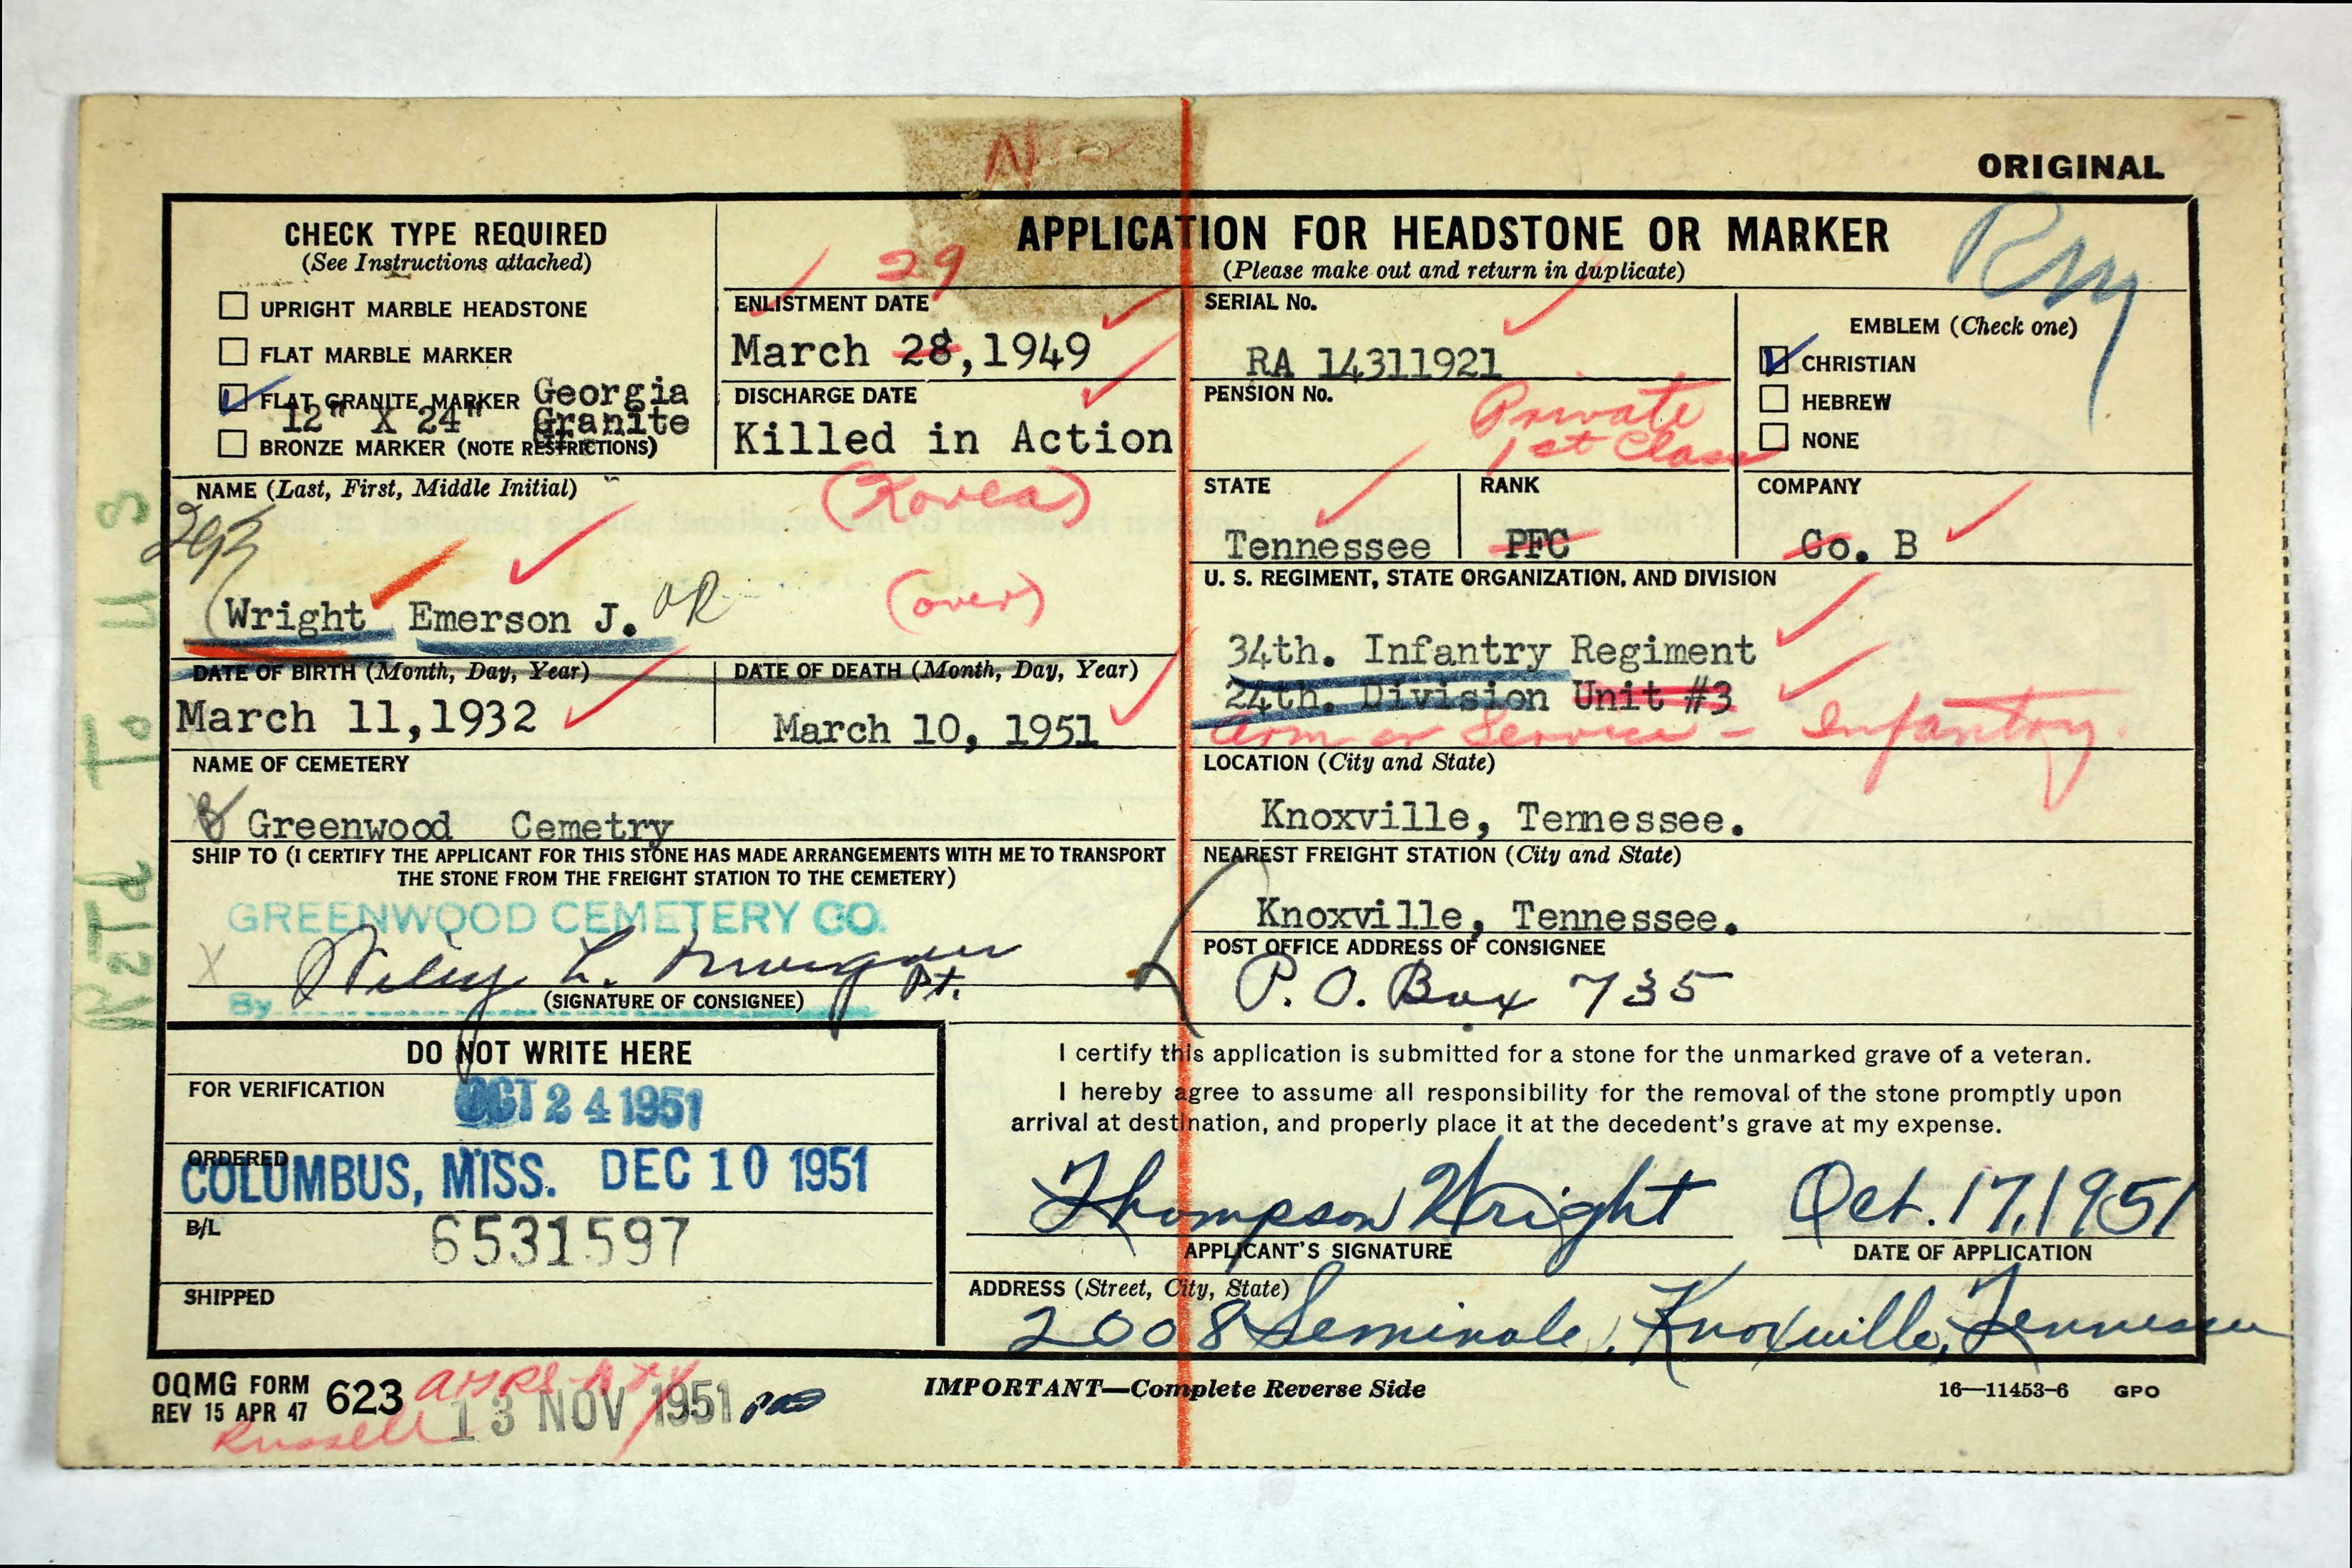 N
ORIGINAL
CHECK TYPE REQUIRED
(See Instructions attached)
UPRIGHT MARBLE HEADSTONE
FLAT MARBLE MARKER
FLAT GRANITE MARKER Georgia
12" X 24" Granite
BRONZE MARKER (NOTE RESTRICTIONS)
APPLICATION FOR HEADSTONE OR MARKER
(Please make out and return in duplicate)
29
ENLISTMENT DATE
March 28,1949
DISCHARGE DATE
Killed in Action
(Korea)
SERIAL No.
RA 14311921
PENSION No.
Private
1st Class
EMBLEM (Check one)
CHRISTIAN
HEBREW
NONE
NAME (Last, First, Middle Initial)
Wright Emerson J. OR
(over)
STATE
Tennessee
RANK
PFC
COMPANY
Co. B
U. S. REGIMENT, STATE ORGANIZATION, AND DIVISION
34th. Infantry Regiment
24th. Division Unit #3
Arm or Service - Infantry.
DATE OF BIRTH (Month, Day, Year)
March 11,1932
DATE OF DEATH (Month, Day, Year)
March 10, 1951
NAME OF CEMETERY
Greenwood Cemetry
LOCATION (City and State)
Knoxville, Tennessee.
SHIP TO (I CERTIFY THE APPLICANT FOR THIS STONE HAS MADE ARRANGEMENTS WITH ME TO TRANSPORT
THE STONE FROM THE FREIGHT STATION TO THE CEMETERY)
GREENWOOD CEMETERY CO.
Wiley L.
By
(SIGNATURE OF CONSIGNEE)
NEAREST FREIGHT STATION (City and State)
Knoxville, Tennessee.
POST OFFICE ADDRESS OF CONSIGNEE
P. O. Box 735
DO NOT WRITE HERE
FOR VERIFICATION
OCT 24 1951
ORDERED
COLUMBUS, MISS. DEC 10 1951
B/L
6531597
SHIPPED
I certify this application is submitted for a stone for the unmarked grave of a veteran.
I hereby agree to assume all responsibility for the removal of the stone promptly upon
arrival at destination, and properly place it at the decedent's grave at my expense.
Thompson Wright
APPLICANT'S SIGNATURE
Oct. 17, 1951
DATE OF APPLICATION
ADDRESS (Street, City, State)
2008 Seminole, Knoxville, Tennessee
OQMG FORM
REV 15 APR 47
623
13 NOV 1951
Russell
IMPORTANT—Complete Reverse Side
16—11453-6 GPO
Retd To U.S